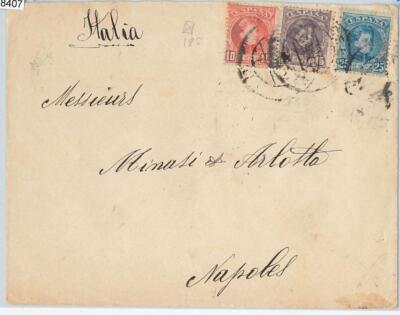 8407
Italia
ESPAÑA ESPAÑA ESPAÑA
10 25 25
Messieurs
Minasi & Arlotta
Napoles